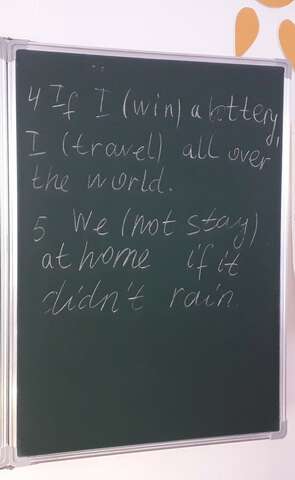 4 If I (win) a lottery,
I (travel) all over
the world.
5 We (not stay)
at home if it
didn't rain.